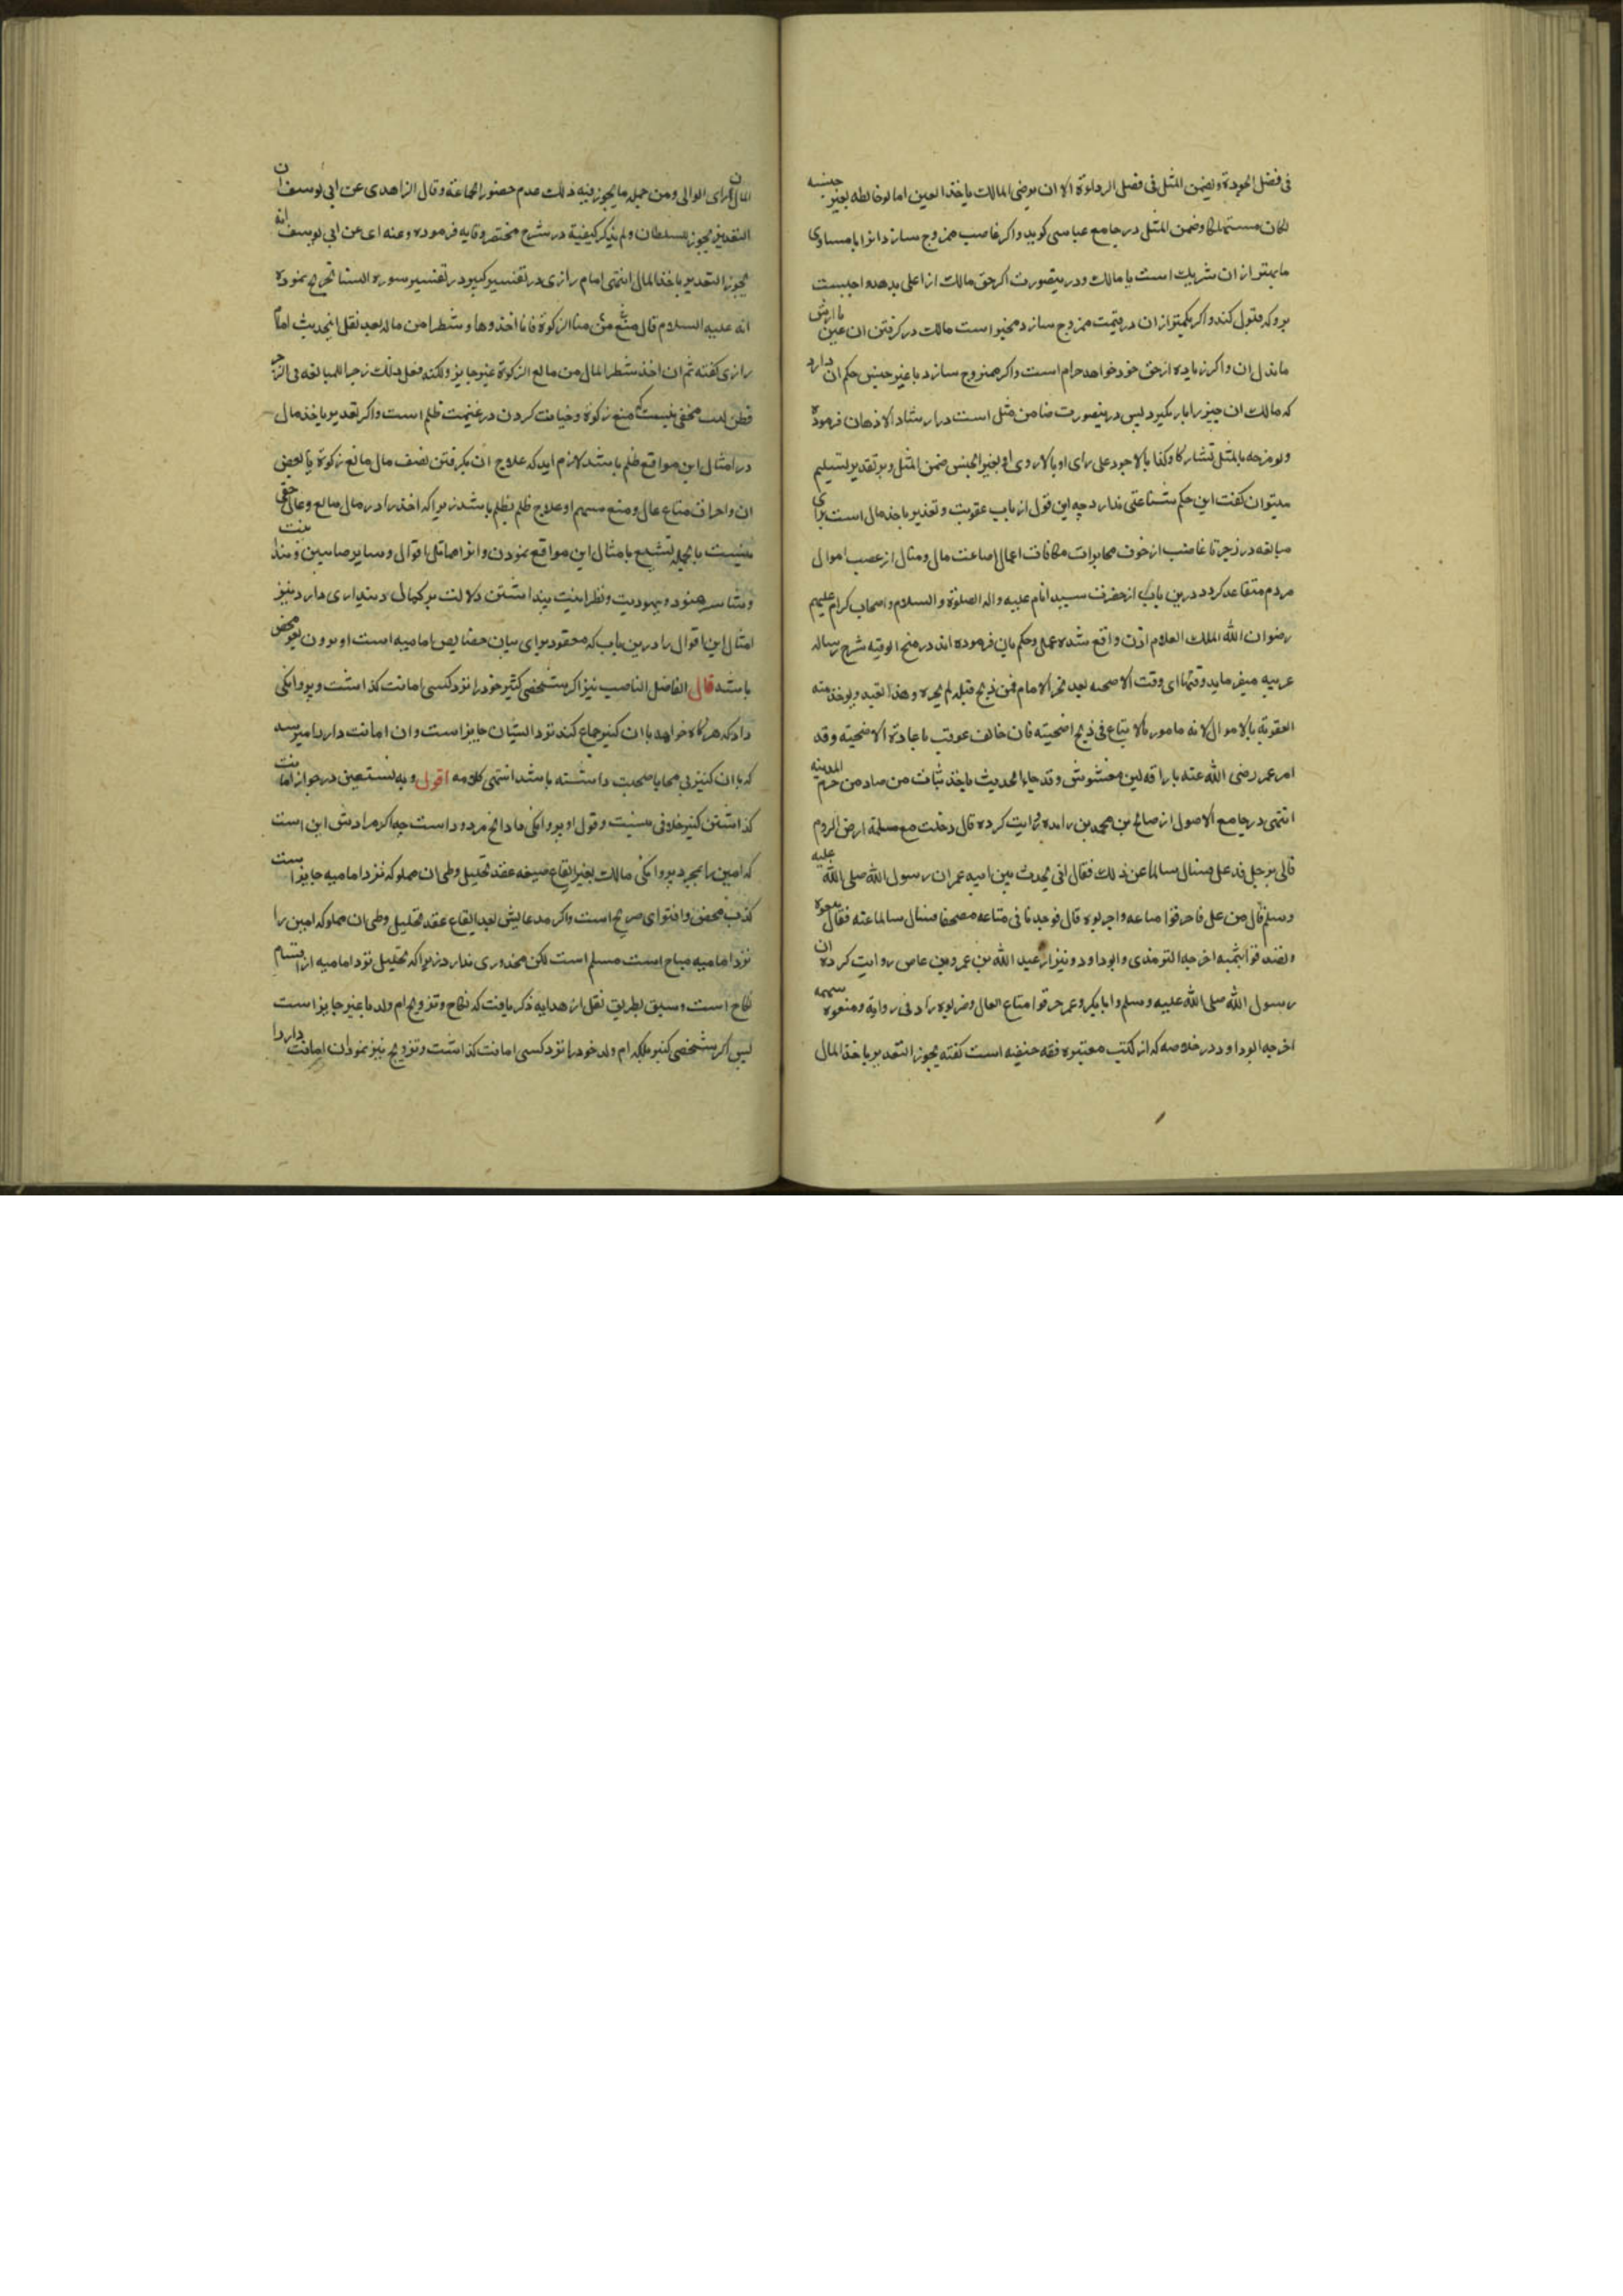 فی فضل الجودة و یضمن المثل فی فضل الرداوة الا ان یرضی المالک یاخذ العین اما لو خالطه بغیر جنسه
لکان مستهلکا وضمن المثل در جامع عباسی کوید واکر غاصب ممزوج سازد انرا با مساوی
یا بهتر از ان شریک است با مالک و درینصورت اکر حق مالک از اعلی بدهد واجبست
برو که قبول کند واکر بکمتر از ان در قیمت ممزوج سازد مخیر است مالک در کرفتن ان عین با ارش
یا بذل ان واکر زیاده از حق خود خواهد حرام است واکر ممزوج سازد با غیر جنس حکم ان دارد
که مالک ان چیز را بار بکیرد پس درینصورت ضامن مثل است در ارشاد الاذهان فرموده
ولو مزجه بالمثل تشارکا وکذا بالاجود علی رای او بالاروی او بغیر الجنس ضمن المثل وبر تقدیر تسلیم
میتوان کفت این حکم شناعتی ندارد چه این قول از باب عقوبت و تعذیر باخذ مال است برای
مبالغه در زجر تا غاصب از خوف مکافات اعمال اضاعت مال و منال از غصب اموال
مردم متقاعد کردد درین باب از حضرت سید انام علیه واله الصلوة والسلام واصحاب کرام علیهم
رضوان الله الملک العلام اذن واقع شده عمل وحکم بان فرموده اند در منح الوفیه شرح رساله
عربیه میفرماید وقتها ای وقت الاضحیه بعد نحر الامام فمن ذبح قبله لم یجزه وهذا القید ویوخذ منه
العقوبة بالاموال لانه مامور بالاتباع فی ذبح اضحیته فان خالف عوقب باعادة الاضحیته وقد
امر عمر رضی الله عنه باراقه لبن مغشوش وقد جاء الحدیث باخذ ثیاب من صاد من حرم المدینه
انتهی در جامع الاصول از صالح بن محمد بن زایده روایت کرده قال دخلت مع مسلمة ارض الروم
فاتی برجل قد غل فسال سالما عن ذلک فقال انی یحدث بین ابیه عمر ان رسول الله صلی الله علیه
وسلم قال من غل فاحرقوا متاعه واضربوه قال فوجدنا فی متاعه مصحفا فسال سالما عنه فقال بیعوه
وتصدقوا بثمنه اخرجه الترمذی وابو داود ونیز از عبد الله بن عمرو بن عاص روایت کرده ان
رسول الله صلی الله علیه وسلم وابا بکر وعمر حرقوا متاع الغال وضربوه زاد فی روایة ومنعوه سهمه
اخرجه ابو داود در خلاصه که از کتب معتبره فقه حنفیه است کفته یجوز التعذیر باخذ المال
المال ان رای الوالی ومن جمله ما یجوز فیه ذلک عدم حضور الجماعة وقال الزاهدی عن ابی یوسف ان
التعذیر یجوز للسلطان ولم یذکر کیفیة در شرح مختصر وقایه فرموده وعنه ای عن ابی یوسف انه
یجوز التعذیر باخذ المال انتهی امام رازی در تفسیر کبیر در تفسیر سوره النسا تخریج نموده
انه علیه السلام قال من منع منا الزکوة فانا اخذوها وشطرا من ماله بعد نقل اینحدیث امام
رازی کفته ثم ان اخذ شطر المال من مانع الزکوة غیر جایز ولکنه فعل ذلک زجرا للمبالغه فی الزجر
فطن لبیب مخفی نیست که منع زکوة وخیانت کردن در غنیمت ظلم است واکر تعذیر باخذ مال
در امثال این مواقع ظلم باشد لازم اید که علاج ان بکرفتن نصف مال مانع زکوة یا بعض
ان واحراق متاع غال ومنع سهم او علاج ظلم بظلم باشد زیرا که اخذ را در مال مانع وغال حقی
نیست بالجمله تشنیع بامثال این مواقع نمودن وانرا مماثل اقوال
هنود و یهودیت ونظرانیت پنداشتن دلالت بر کمال دینداری دارد نیز
امثال این اقوال را درین باب که معقود برای بیان خصایص امامیه است اوردن لغو محض
باشد قال الفاضل الناصب نیز اکر شخصی کنیز خود را نزد کسی امانت کذاشت وپروانکی
داد که هر کاه خواهد با ان کنیز جماع کند نزد ایشان جایز است وان امانت دار را میرسد
که با ان کنیز بی محابا صحبت داشته باشد انتهی کلامه اقول وبه نستعین در جواز امانت
کذاشتن کنیز خلافی نیست وقول او پروانکی داد الخ مردود است چه اکر مرادش این است
که امین را بمجرد پروانکی مالک بغیر ایقاع صیغه عقد تحلیل وطی ان مملوکه نزد امامیه جایز است
کذب محض وافترای صریح است واکر مدعایش بعد ایقاع عقد تحلیل وطی ان مملوکه امین را
نزد امامیه مباح است مسلم است لکن محذوری ندارد زیرا که تحلیل نزد امامیه از اقسام
نکاح است وسبق بطریق نقل از هدایه ذکر یافت که نکاح وتزویج ام ولد با غیر جایز است
پس اکر شخصی کنیز بلکه ام ولد خود را نزد کسی امانت کذاشت وتزویج نیز نمود ان امانت دار را